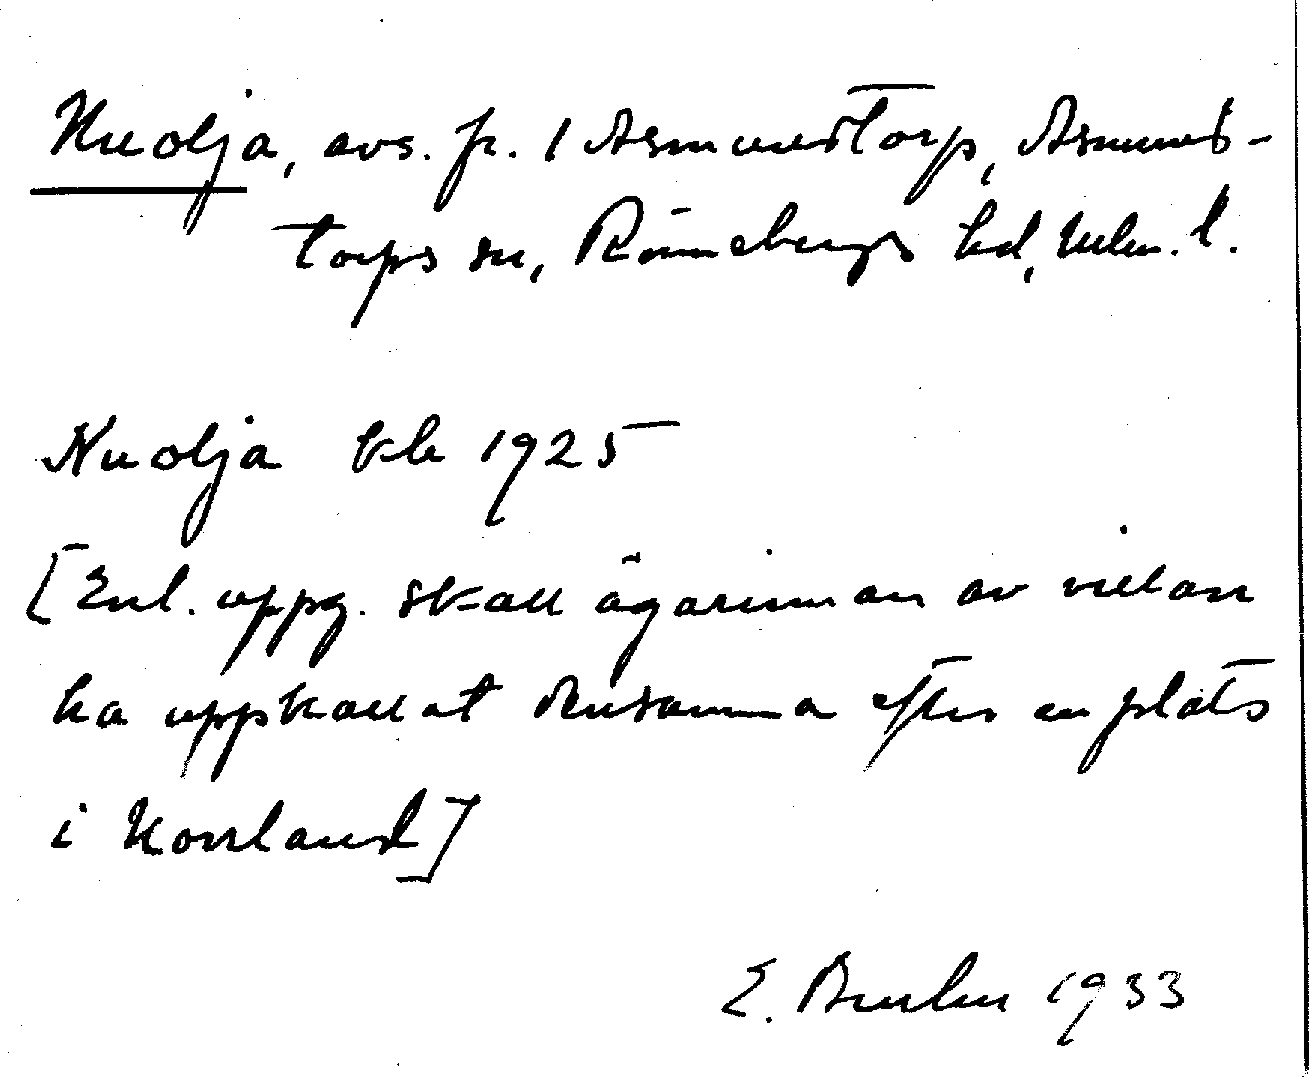 Nuolja, avs. fr. 1 Asmundtorp, Asmund-
torps sn, Rönnebergs hd, Malm. l.
Nuolja kb 1925
[Enl. uppg. skall ägarinnan av villan
ha uppkallat densamma efter en plats
i Norrland]
E. 1933